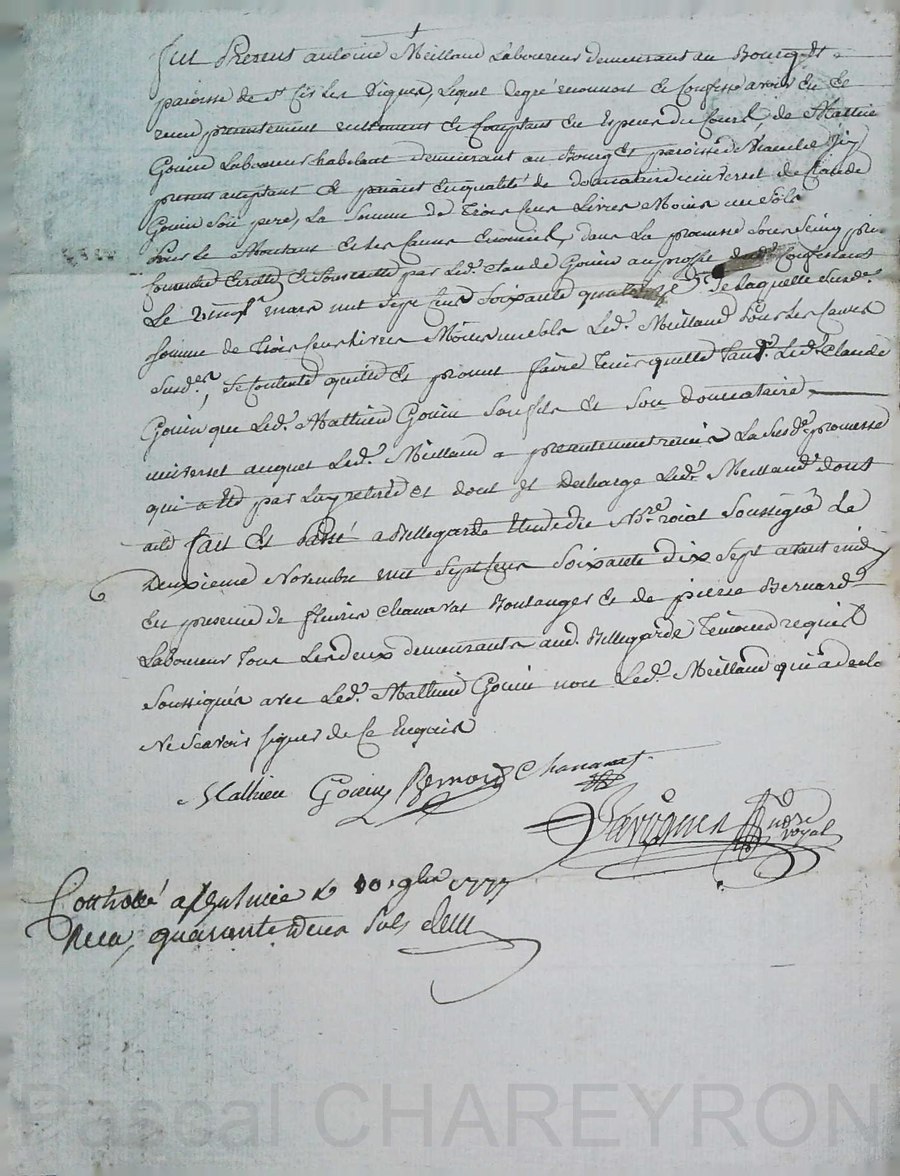 fut Present antoine Meilland Laboureur demeurant au Bourg et
paroisse de St Cir Les Vignes, Lequel degré reconnoit et Confesse avoir Eu et
receu presentement reellement et Comptant En Especes du Cours, de Mathieu
Gouin Laboureur habitant demeurant au Bourg et paroisse
present acceptant et païant En qualité de donnataire universel de Claude
Gouin Son pere, La Somme de Trois Cens Livres Moins un Sols
Pour le Montant et Les Causes Enoncées, dans La promesse Sous Seing privé
Ecritte et Souscritte par Led. Claude Gouin au proffit dud. Confessant
Le vingt mars mil Sept Cens Soixante quatorze De Laquelle Susde.
Somme de Trois Cens Livres Moins Led. Meilland Pour Les Causes
Susdes, Se Contente quitte et promet faire Tenir quitte Tant Led. Claude
Gouin que Led. Mathieu Gouin Son fils et Son donnataire
universel auquel Led. Meilland a presentement remis La Susde. promesse
qui a Eté par Luy retiré et dont il Decharge Led. Meilland dont
acte fait Et Passé a Bellegarde Etude du Nre. roial Soussigné Le
Deuxieme Novembre mil Sept Cens Soixante dix Sept avant midy
En presence de fleurie Chanavat Boulanger Et de pierre Bernard
Laboureur Tous Les deux demeurants aud. Bellegarde Temoins requis
Soussignés avec Led. Mathieu Gouin non Led. Meilland qui a declaré
Ne Scavoir Signer de Ce Enquis
Mathieu Gouin Bernard Chanavat
nore royal
Controllé a le 10 9bre 1777
Recu, quarante deux Sols
Pascal CHAREYRON